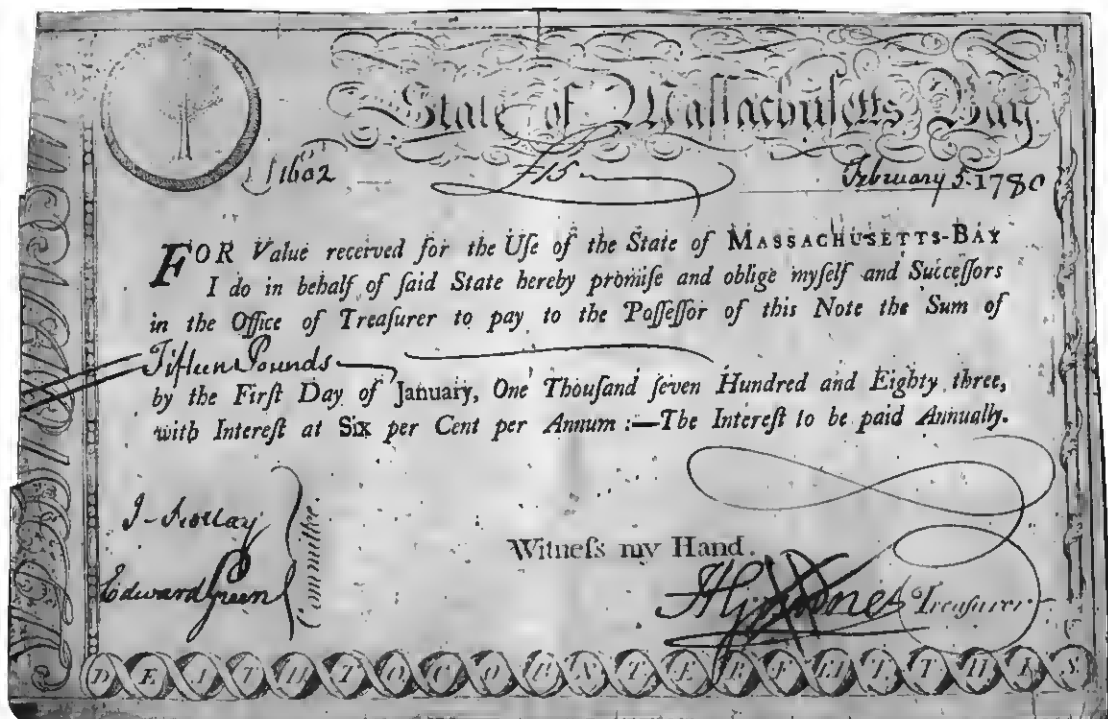 State of Maſſachuſetts Bay
1602 £15 February 5. 1780
FOR Value received for the Uſe of the State of MASSACHUSETTS-BAY
I do in behalf of ſaid State hereby promiſe and oblige myſelf and Succeſſors
in the Office of Treaſurer to pay to the Poſſeſſor of this Note the Sum of
Fifteen Pounds
by the Firſt Day of January, One Thouſand ſeven Hundred and Eighty three,
with Intereſt at Six per Cent per Annum :—The Intereſt to be paid Annually.
Edward Green
Committee
Witneſs my Hand.
Treaſurer
DEATH TO COUNTERFEIT THIS